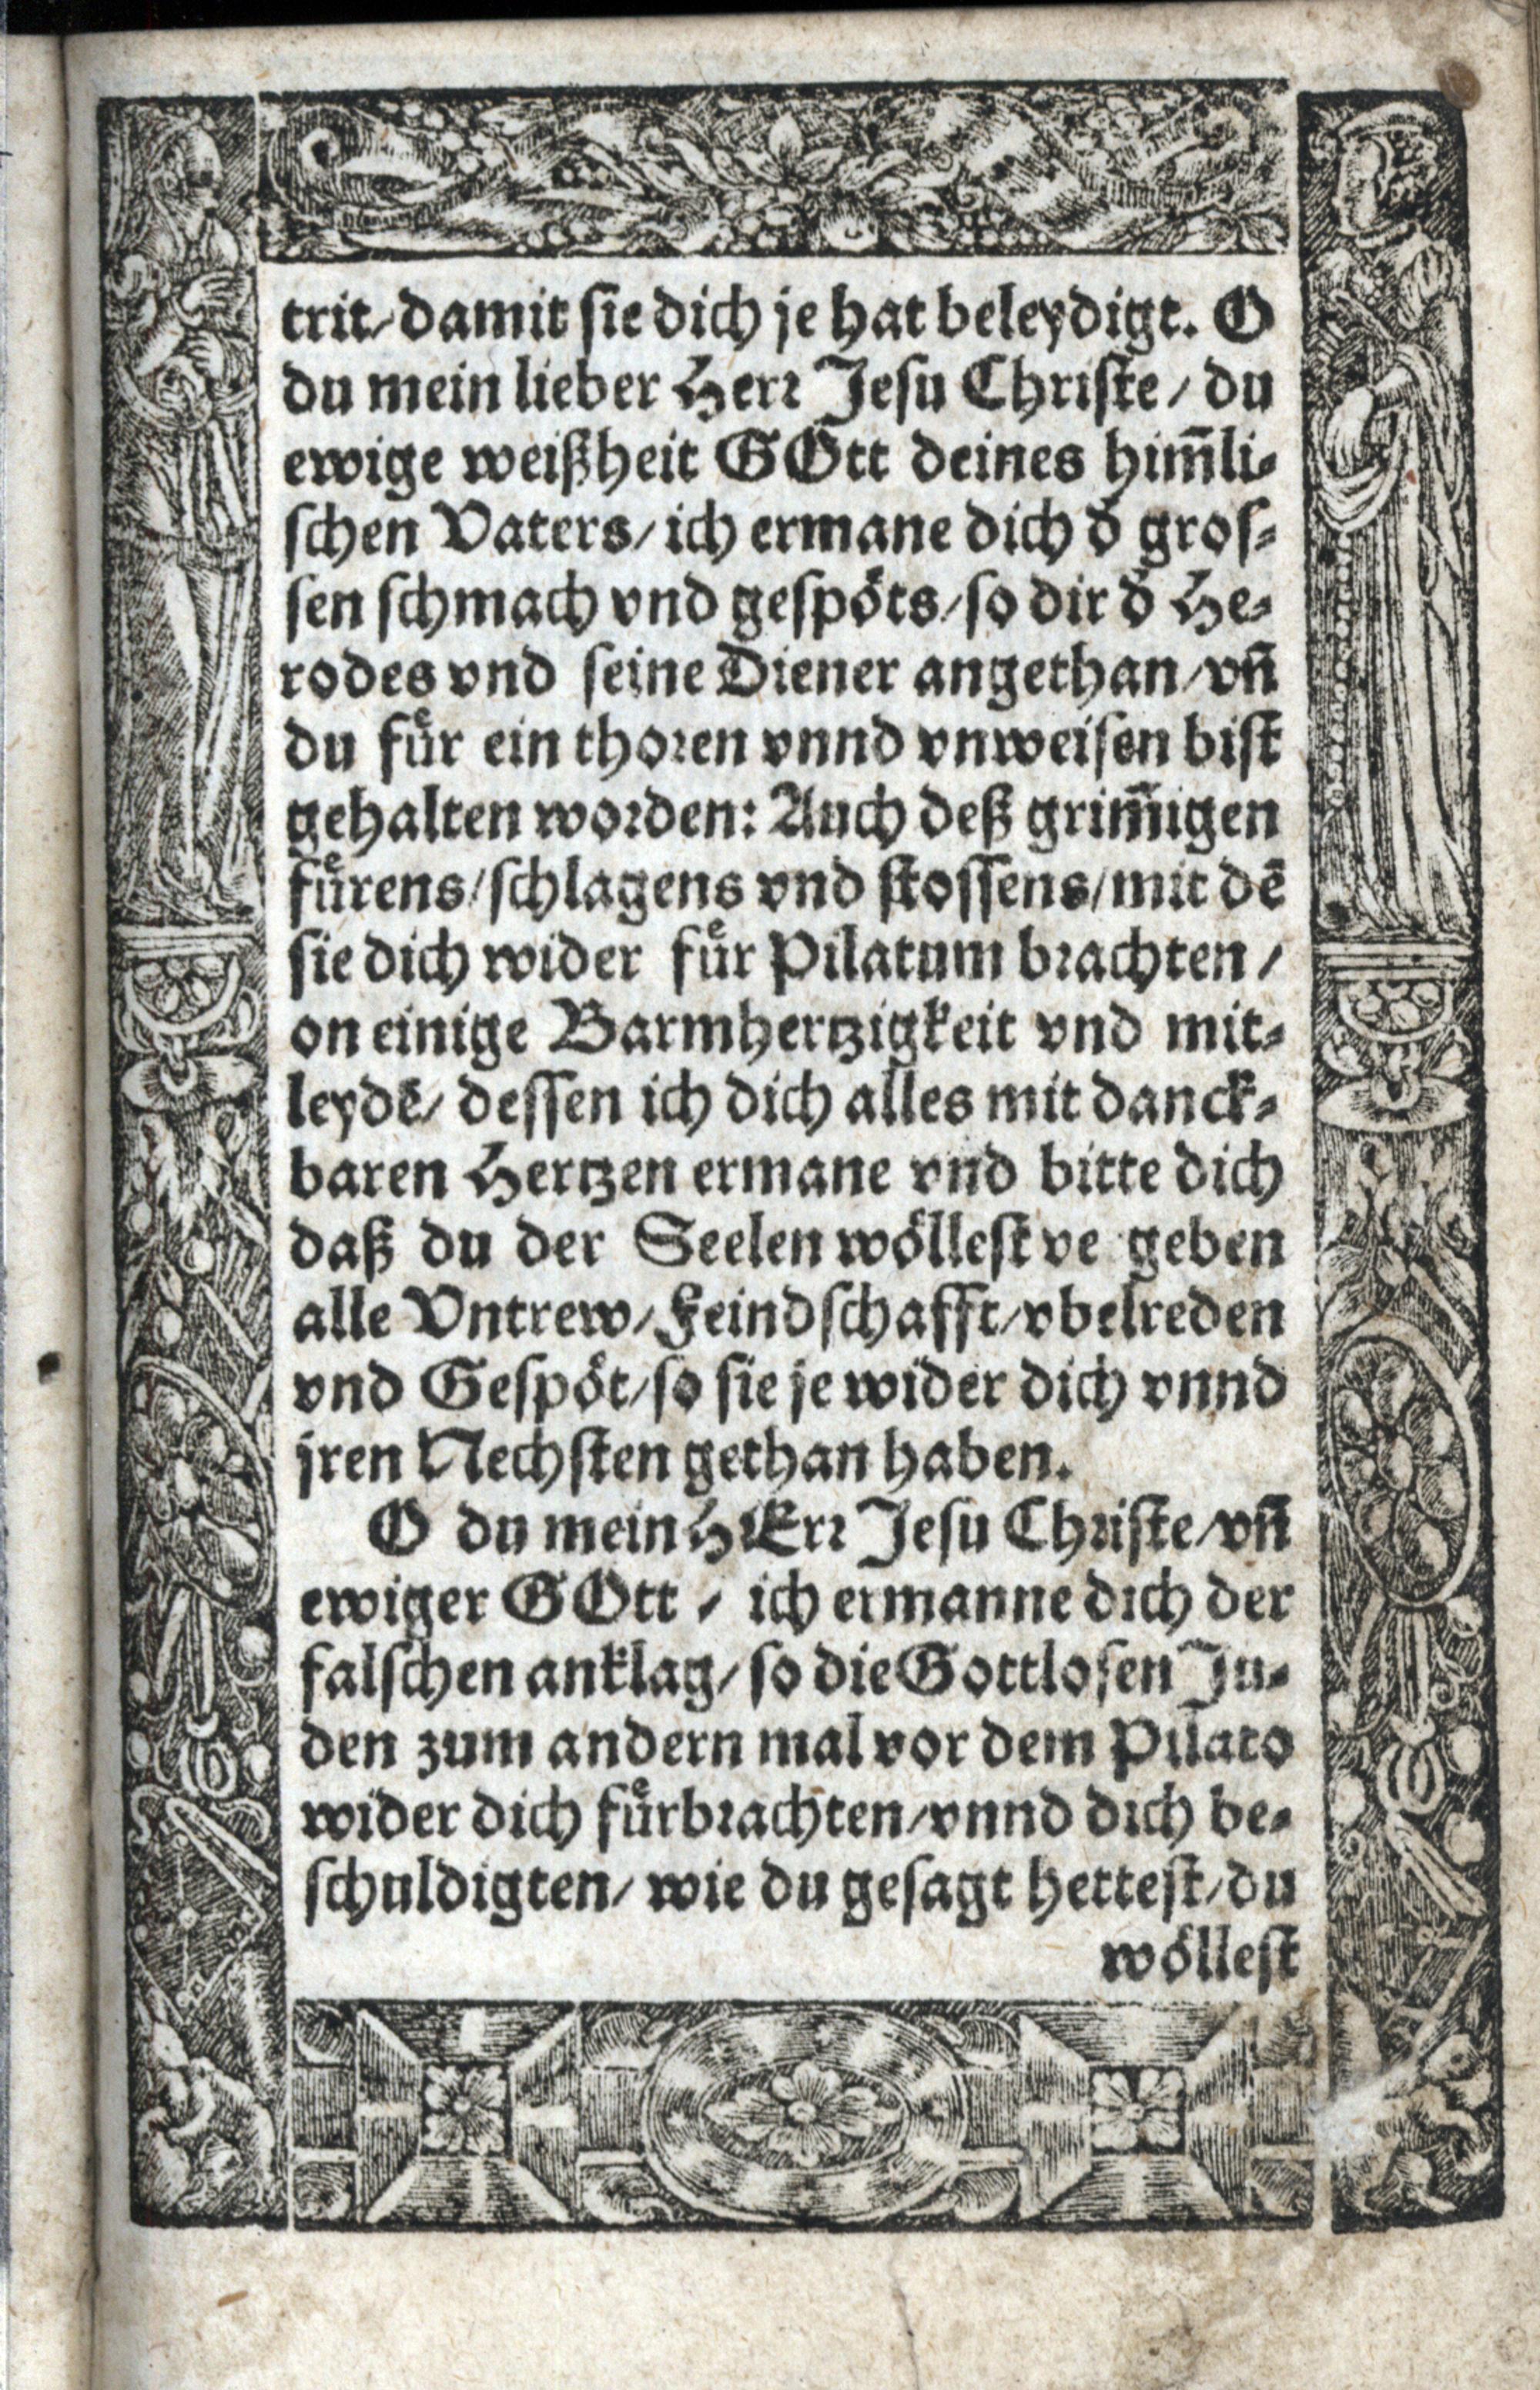 trit/damit sie dich je hat beleydigt. O
du mein lieber Herr Jesu Christe/ du
ewige weißheit GOtt deines him̃li-
schen Vaters/ ich ermane dich d̕ gros-
sen schmach vnd gespoͤts/so dir d̕ He-
rodes vnd seine Diener angethan/vñ
du fuͤr ein thoren vnnd vnweisen bist
gehalten worden: Auch deß grim̃igen
fuͤrens/schlagens vnd stossens/mit dē
sie dich wider fuͤr Pilatum brachten/
on einige Barmhertzigkeit vnd mit-
leydē/ dessen ich dich alles mit danck-
baren Hertzen ermane vnd bitte dich
daß du der Seelen woͤllest ve geben
alle Vntrew/Feindschafft/vbelreden
vnd Gespoͤt/so sie je wider dich vnnd
jren Nechsten gethan haben.
O du mein HErr Jesu Christe/vñ
ewiger GOtt/ ich ermanne dich der
falschen anklag/ so die Gottlosen Ju-
den zum andern mal vor dem Pilato
wider dich fuͤrbrachten/vnnd dich be-
schuldigten/ wie du gesagt hettest/du
woͤllest